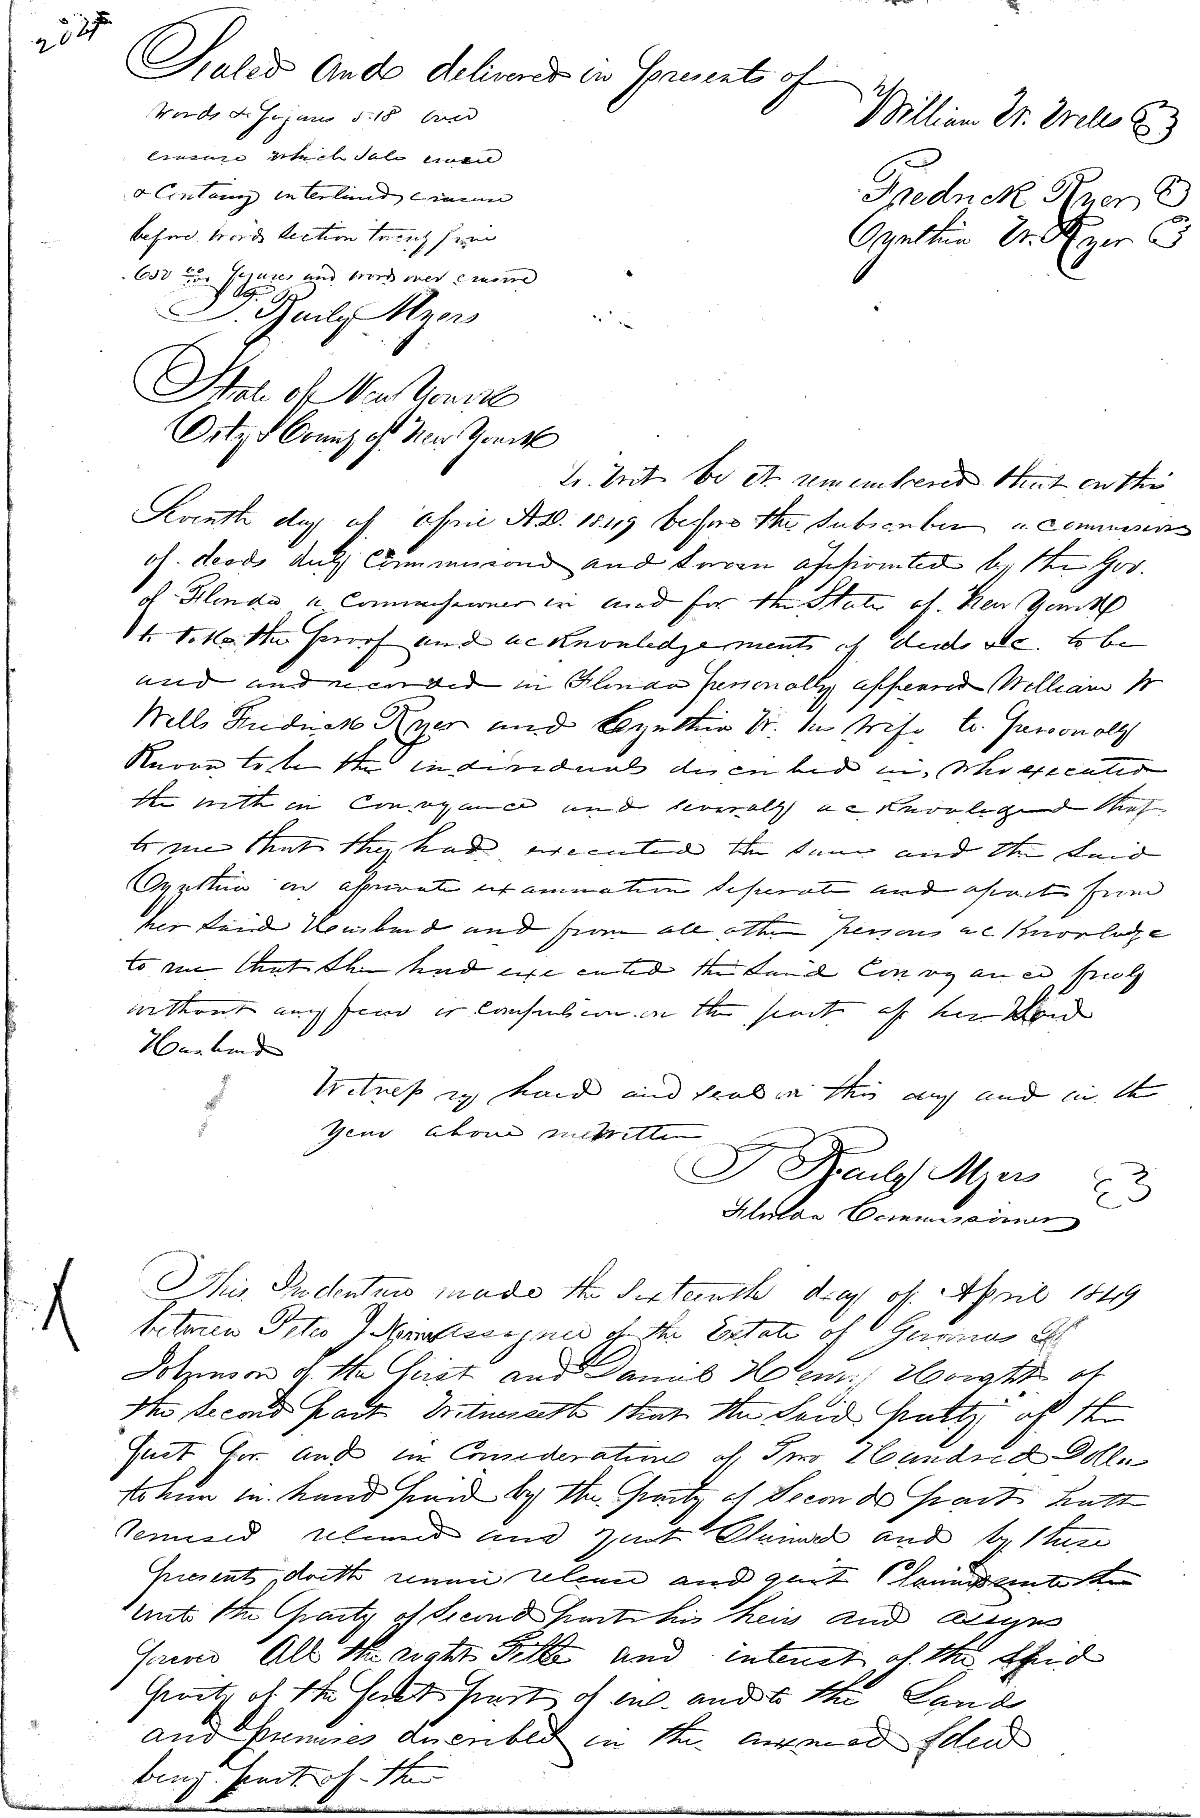 Sealed And delivered in presents of
Words & figures 5.18 over
erasure which Sale erased
& Containg interlined erasure
before words Section twenty five
650 00/100 figures and word over erasure
T. Baily Myers
William W. Wells
Fredrick Ryer
Cynthia W. Ryer
State of New Yourk
City & County of New Yourk
To. Wit. be it remembered that on this
Seventh day of April A.D. 1849 before the Subscriber a Commission
of. deeds duly Commissiond and Sworn appointed by the Gov.
of Florida a Commissioner in and for the State of New Yourk
to take the proof and acknowledgements of deeds &c. to be
and and recorded in Florida personally appeared William W
Wells Fredrick Ryer and Cynthia W. his Wife to personally
Known to be the individuals described in, who executed
the with in Conveyance and severally acknowledged that
to me that they had executed the same and the Said
Cynthia on aprivate examination seperate and apart from
her Said Housbend and from all other persons acknowledge
to me that She had executed the Said Conveyance freely
without any fear or compulsion on the part of her Said
Husband
Witness my hand and seal on this day and in the
year above written
T Baily Myers
Florida Commissioner
This Indenture made the Sixteenth day of April 1849
between Peter J Assignee of the Estate of
Johnson of the first and Daniel Henry Hought of
the Second part Witnesseth that the Said party of the
first for and in Consideration of Two Hundred Dolla
to him in hand paid by the party of Second part hath
remised released and quit Claimed and by these
presents doth remise release and quit Claim
unto the party of Second part his heirs and assigns
forever All the right Title and interest of the Said
party of the first part of in and to the Lands
and premises described in the annexed deed
being part of the